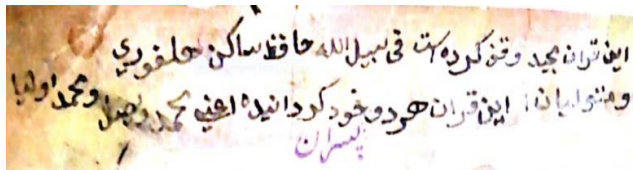 این قران مجید وقف کرده است فی سبیل الله حافظ ساکن هلفوري
و متولیان این قران هردو خود کردانیده اعنی محمد و محمد اولیا
پسران